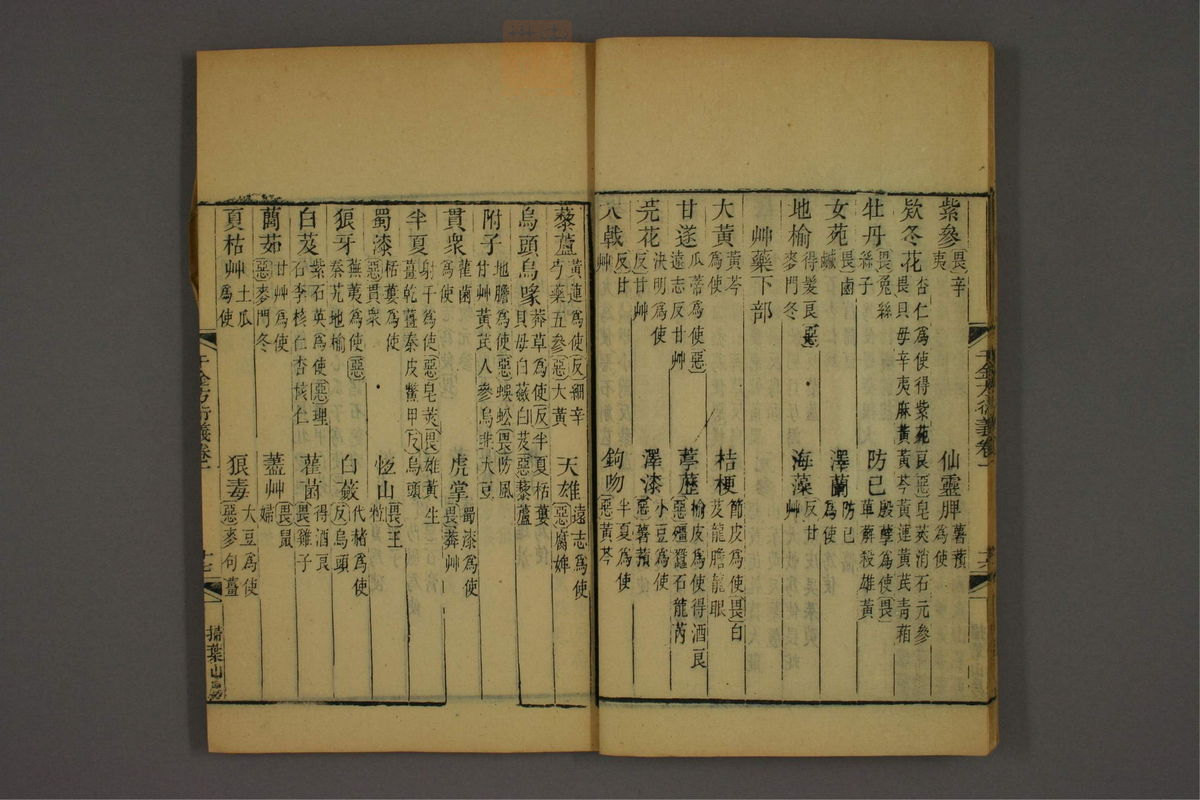 紫參畏辛夷　仙靈脾薯蕷爲使
欵冬花杏仁爲使得紫菀良惡皂莢消石元參畏貝毋辛夷麻黃黃芩黃連黃芪靑葙
牡丹畏兔絲絲子　防巳殷孽爲使畏萆薢殺雄黃
女苑畏鹵鹹　澤蘭防巳爲使
地榆得髮良惡麥門冬　海藻反甘艸
艸藥下部
大黃黃芩爲使　桔梗節皮爲使畏白芨龍膽龍眼
甘遂瓜蒂爲使惡遠志反甘艸　葶藶榆皮爲使得酒良惡殭蠶石龍芮
芫花決明爲使反甘艸　澤漆小豆爲使惡薯蕷
大戟反甘艸　鉤吻半夏爲使惡黃芩
千金方衍義卷一　十七　掃葉山房
藜蘆黃連爲使反細辛芍藥五參惡大黃　天雄遠志爲使惡腐婢
烏頭烏喙莽草爲使反半夏栝蔞貝毋白蘞白芨惡藜蘆
附子地膽爲使惡蜈蚣畏防風甘艸黃芪人參烏韭大豆
貫衆雚菌爲使　虎掌蜀漆爲使畏莽艸
半夏射干爲使惡皂莢畏雄黃生薑乾薑秦皮鱉甲反烏頭
蜀漆栝蔞爲使惡貫衆　恆山畏玉札
狼牙蕪荑爲使惡秦艽地榆　白蘞代赭爲使反烏頭
白芨紫石英爲使惡理石李核仁杏核仁　雚菌得酒良畏雞子
䕡茹甘艸爲使惡麥門冬　藎艸畏鼠婦
夏枯艸土瓜爲使　狼毒大豆爲使惡麥句薑